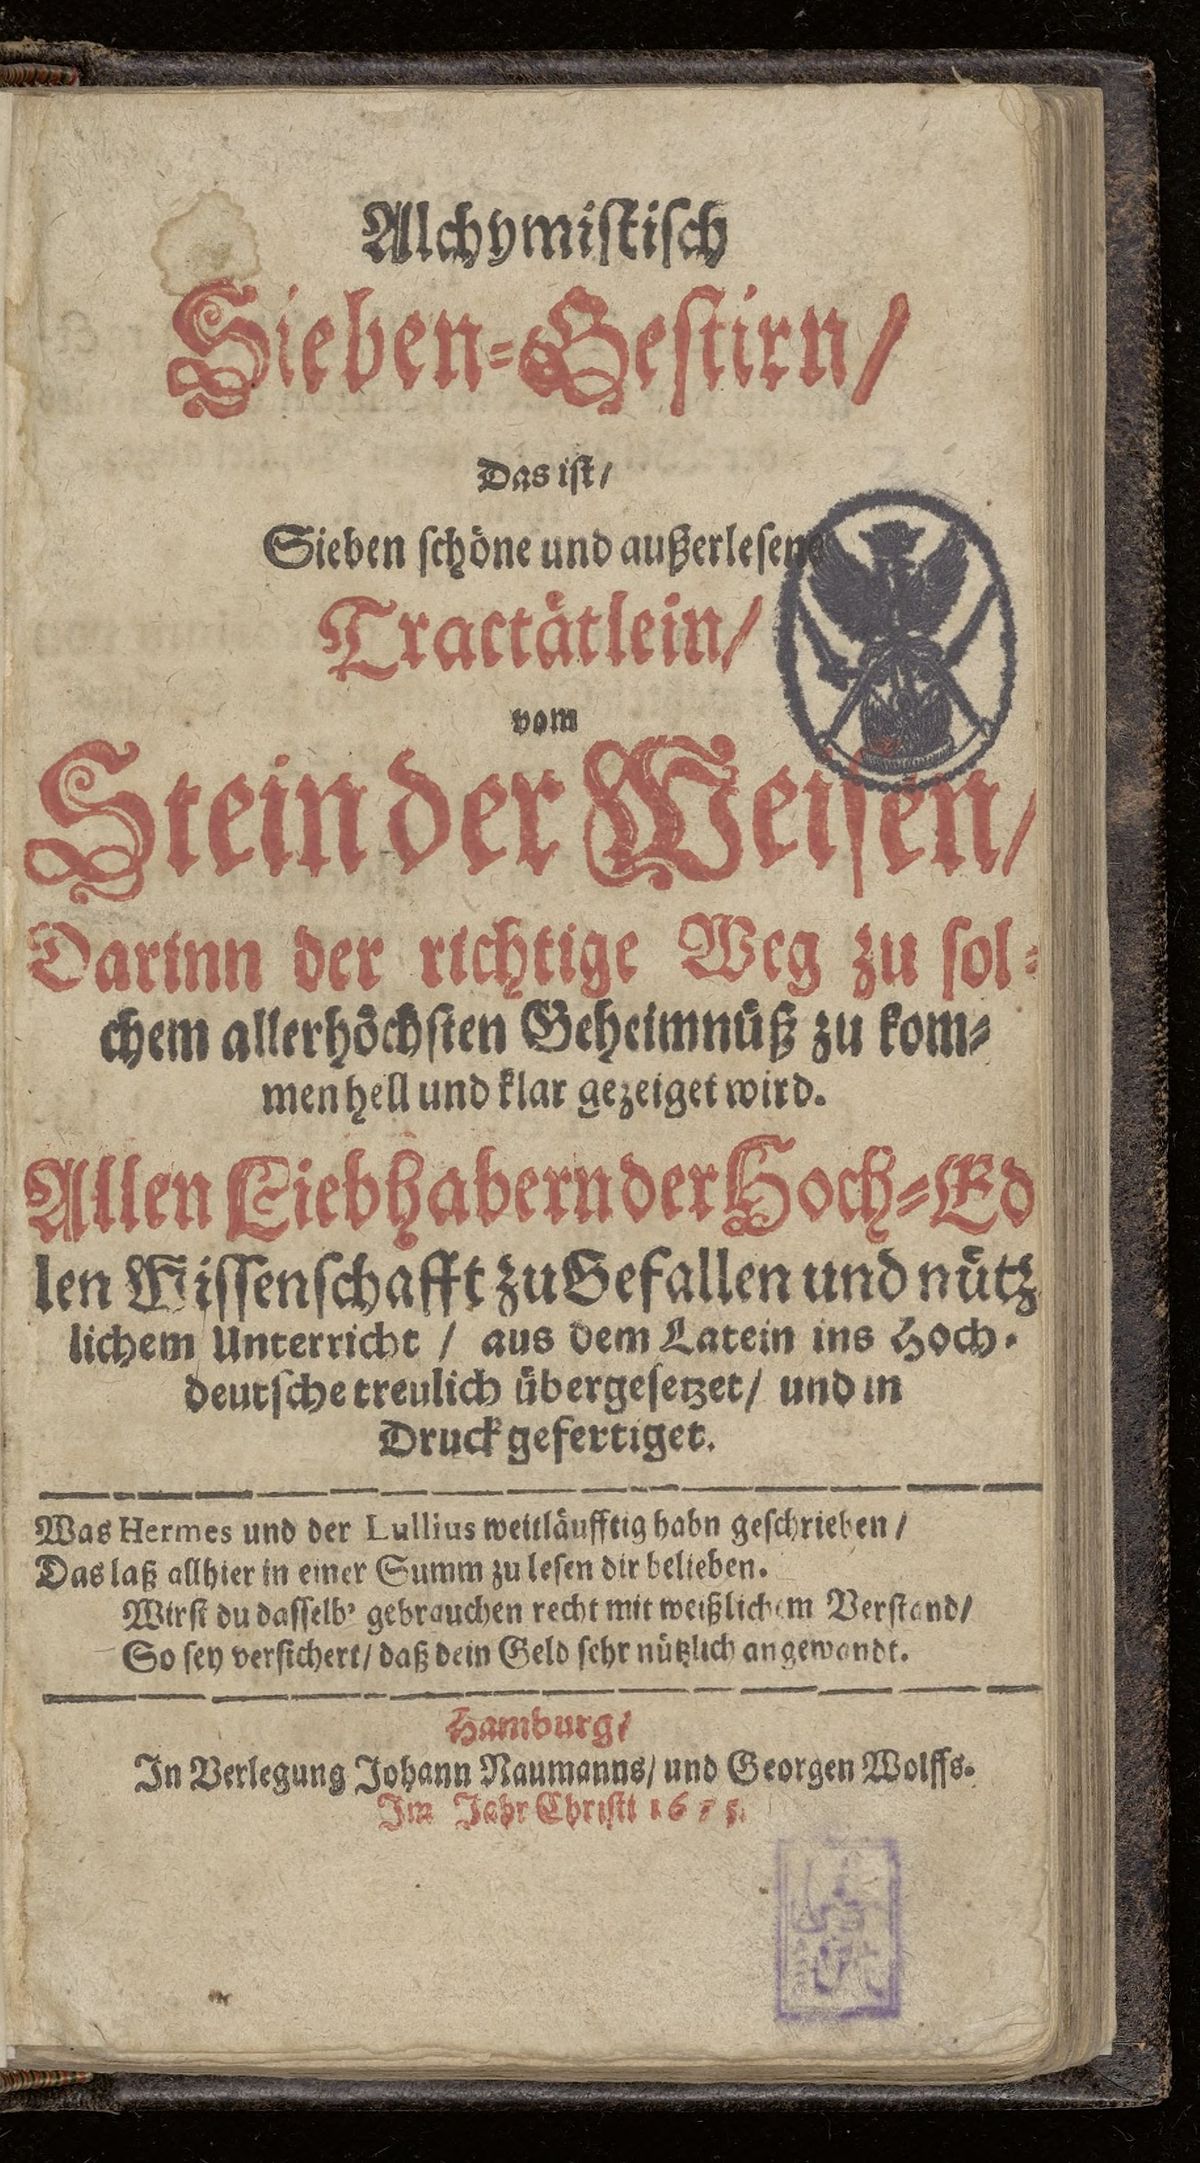 Alchymistisch
Sieben-Gestirn/
Das ist/
Sieben schöne und außerlesene
Tractätlein/
vom
Stein der Weisen/
Darinn der richtige Weg zu sol-
chem allerhöchsten Geheimnüß zu kom-
men hell und klar gezeiget wird.
Allen Liebhabern der Hoch-Ed
len Wissenschafft zu Gefallen und nütz
lichem Unterricht / aus dem Latein ins Hoch-
deutsche treulich übergesetzet/ und in
Druck gefertiget.
Was Hermes und der Lullius weitläufftig habn geschrieben /
Das laß allhier in einer Summ zu lesen dir belieben.
Wirst du dasselb' gebrauchen recht mit weißlichem Verstand/
So sey versichert/ daß dein Geld sehr nützlich angewandt.
Hamburg/
In Verlegung Johann Naumanns/ und Georgen Wolffs.
Im Jahr Christi 1675.